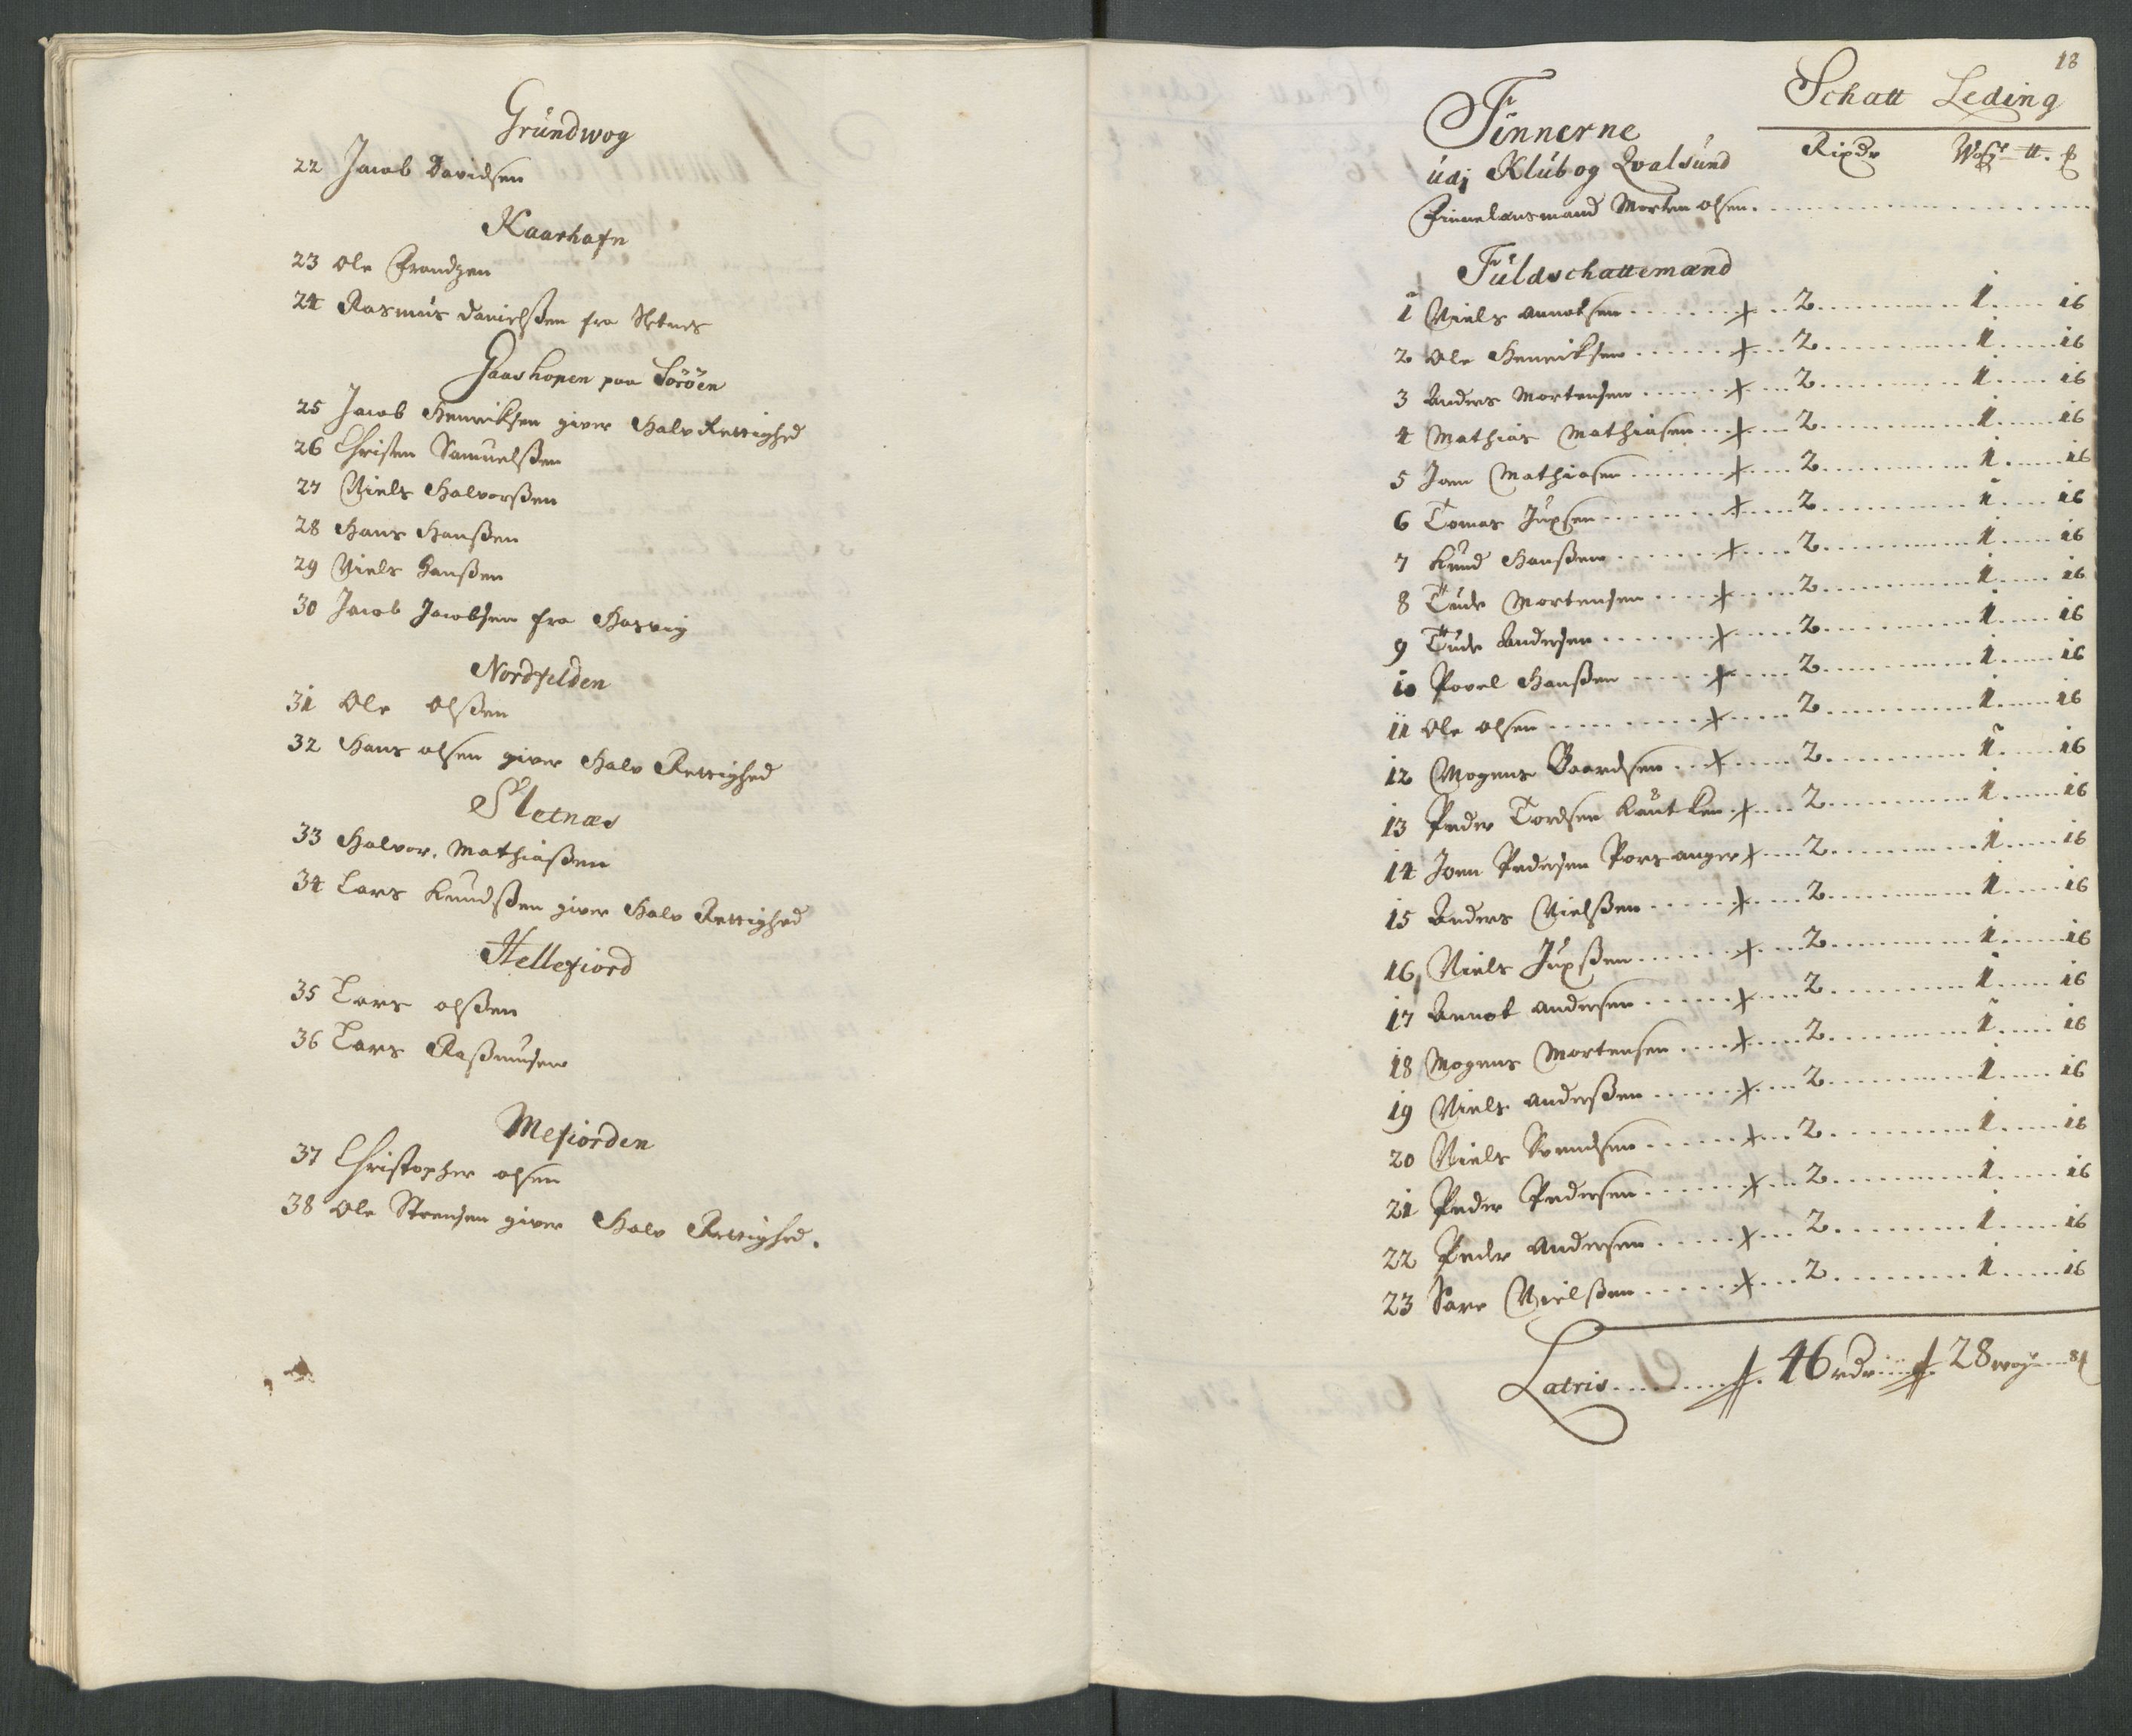 Gründwog
22 Jacob Davidsen
Kaarhafn
23 Ole Frandzen
24 Rasmus Danielßen fra Sletnes
Gaashopen paa Söröen
25 Jacob Henriksen giver Halv Rettighed
26 Christen Samuelßen
27 Niels Halvorßen
28 Hans Hanßen
29 Niels Hanßen
30 Jacob Jacobsen fra Hasvig
Nordfelden
31 Ole Olßen
32 Hans olsen giver Halv Rettighed
Sletnæs
33 Halvor Mathiaßen
34 Lars Knudßen giver Halv Rettighed
Hellefiord
35 Lars olßen
36 Lars Raßmusen
Mefiorden
37 Christopher olsen
38 Ole Steensen giver Halv Rettighed.
18
Schatt Leding
Finnerne
Rixdr Woger ℔. ß
udj Klubog Qvalsund
Finnelensmand Morten olsen
Fuldschattemænd
1 Niels Annotsen + 2 1 16
2 Ole Henriksen + 2 1 16
3 Anders Mortensen + 2 1 16
4 Mathias Mathiasen + 2 1 16
5 Joen Mathiasen + 2 1 16
6 Tomas Jupsen + 2 1 16
7 Knud Hanßen + 2 1 16
8 Tude Mortensen + 2 1 16
9 Tude Andersen + 2 1 16
10 Povel Hanßen + 2 1 16
11 Ole olsen + 2 1 16
12 Mogens Baardsen + 2 1 16
13 Peder Tordsen + 2 1 16
14 Joen Pedersen Porsanger + 2 1 16
15 Anders Nielßen + 2 1 16
16 Niels Jupßen + 2 1 16
17 Annot andersen + 2 1 16
18 Mogens Mortensen + 2 1 16
19 Niels anderßen + 2 1 16
20 Niels Svendsen + 2 1 16
21 Peder Pedersen + 2 1 16
22 Peder Andersen + 2 1 16
23 Sare Nielßen + 2 1 16
Latris 46 rdr 28 wog 8